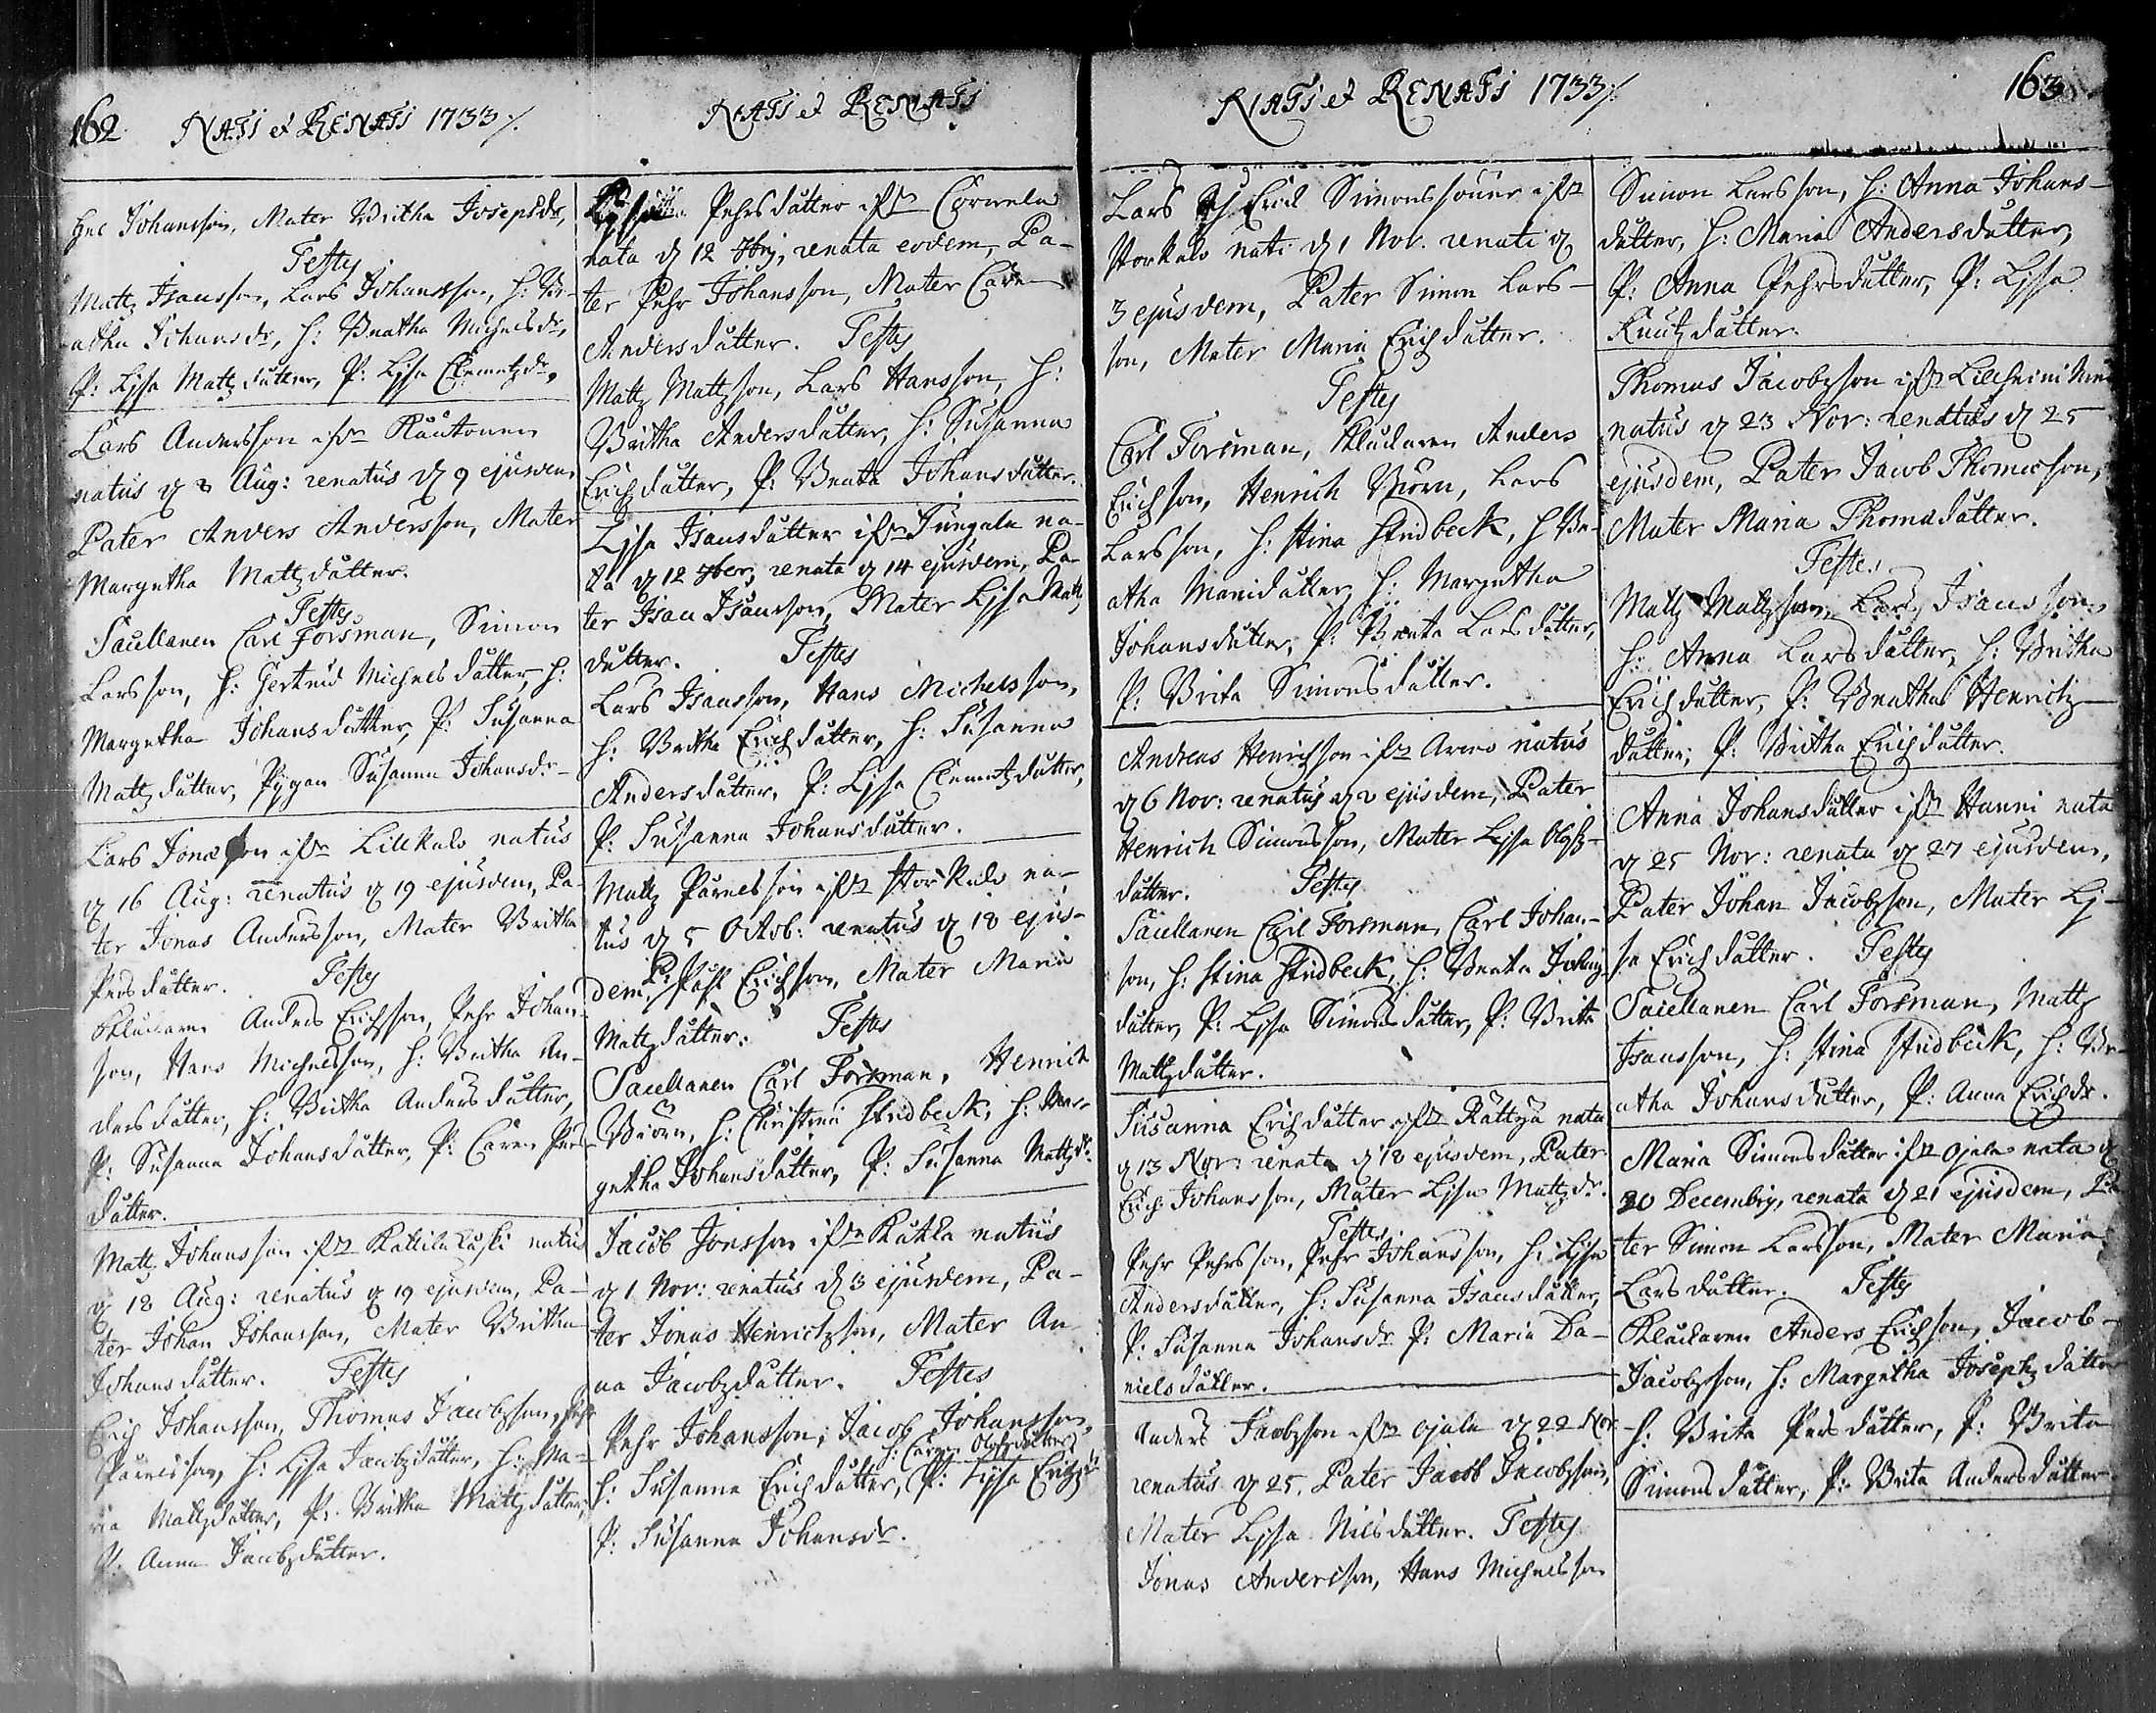 162 NATI et RENATI 1733 /.
hel Johansson, Mater Britha Josepsdr,
Testes
Mattz Isacsson, Lars Johansson, h: Be-
atha Johansdr, h: Beatha Michelsdr,
P: Lisa Mattzdotter, P: Lisa Clemetzdr,
Lars Andersson ifrå Rautonen
natus d Aug: renatus d 9 ejusdem
Pater Anders Andersson, Mater
Margetha Mattzdotter.
Testes
Sacellanen Carl Forsman, Simon
Larsson, h: Gertrud Michelsdotter, h:
Margetha Johansdotter, P: Susanna
Mattzdotter, Pygan Susanna Johansdr
Lars Jonæson ifrå Lillkalo natus
d 16 Aug: renatus d 19 ejusdem, Pa-
ter Jonas Andersson, Mater Britha
Persdotter. Testes
Kluckaren Anders Erichsson, Pehr Johan-
son, Hans Michelsson, h: Britha An-
dersdotter, h: Britha Andersdotter,
P: Susanna Johansdotter, P: Caren Pers-
dotter.
Mattz Johansson ifrå natus
d 18 Aug: renatus d 19 ejusdem, Pa-
ter Johan Johansson, Mater Britha
Johansdotter. Testes
Erich Johansson, Thomas Jacobzson, Pehr
Påvelsson, h: Lisa Jacobzdotter, h: Ma-
ria Mattzdotter, P: Britha Mattzdotter,
P: Anna Jacobzdotter.
NATI et RENATI
Pehrsdotter ifrå Cornela
nata d 12 7bris, renata eodem, Pa-
ter Pehr Johansson, Mater Caren
Andersdotter. Testes
Mattz Mattzson, Lars Hansson, h:
Britha Andersdotter, h: Susanna
Erichdotter, P: Beata Johansdotter.
Lisa Isacsdotter ifrå Tungala na-
ta d 12 7ber, renata d 14 ejusdem, Pa-
ter Isac Isacsson, Mater Lisa Mattz
dotter. Testes
Lars Isacsson, Hans Michelsson,
h: Britha Erichdotter, h: Susanna
Andersdotter, P: Lisa Clemetzdotter,
P: Susanna Johansdotter.
Mattz Påvelsson ifrå Storkalo na-
tus d 5 Octob: renatus d 18 ejus-
dem, P: Påfl Erichson, Mater Maria
Mattzdotter. Testes
Sacellanen Carl Forsman, Henrich
Biörn, h: Christina Stridbeck, h: Mar-
getha Johansdotter, P: Susanna Mattzdr.
Jacob Jonsson ifrå Kukla natus
d 1 Nov: renatus d 3 ejusdem, Pa-
ter Jonas Henrichzson, Mater An-
na Jacobzdotter. Testes
Pehr Johansson, Jacob Johansson,
h: Caren Olofzdotter
h: Susanna Erichdotter, P: Lissa Erichzdr
P: Susanna Johansdr.
NATI et RENATI 1733 /. 163
Lars och Erich Simonssöner ifrå
Storkalo nati d 1 Nov. renati d
3 ejusdem, Pater Simon Lars-
son, Mater Maria Erichdotter.
Testes
Carl Forsman, Kluckaren Anders
Erichson, Henrich Biörn, Lars
Larsson, h: Stina Stridbeck, h: Be-
atha h: Margetha
Johansdotter, P: Beata Larsdotter,
P: Brita Simonsdotter.
Andreas Henrichson ifrå natus
d 6 Nov: renatus d ejusdem, Pater
Henrich Simonsson, Mater Lissa Olofz-
dotter. Testes
Sacellanen Carl Forsman, Carl Johan-
son, h: Stina Stridbeck, h: Beata Johans
dotter, P: Lissa Simonsdotter, P: Brita
Mattzdotter.
Susanna Erichdotter ifrå nata
d 13 Nov: renata d 18 ejusdem, Pater
Erich Johansson, Mater Lissa Mattzdr.
Testes
Pehr Pehrsson, Pehr Johansson, h: Lissa
Andersdotter, h: Susanna Isacsdotter,
P: Susanna Johansdr P: Maria Da-
nielsdotter.
Anders Jacobzson ifrå Ojala d 22 Nov
renatus d 25, Pater Jacob Jacobzson,
Mater Lissa Nilsdotter. Testes
Jonas Andersson, Hans Michelsson
Simon Larsson, h: Anna Johans-
dotter, h: Maria Andersdotter,
P: Anna Pehrsdotter, P: Lissa
Knutzdotter.
Thomas Jacobzson ifrå
natus d 23 Nov: renatus d 25
ejusdem, Pater Jacob Thomæson,
Mater Maria Thomædotter.
Testes
Mattz Mattzson, Lars Isacsson,
h: Anna Larsdotter, h: Britha
Erichdotter, P: Beatha Henrichz
dotter, P: Britha Erichdotter.
Anna Johansdotter ifrå Hanni nata
d 25 Nov: renata d 27 ejusdem,
Pater Johan Jacobzson, Mater Li-
sa Erichdotter. Testes
Sacellanen Carl Forsman, Mattz
Isacsson, h: Stina Stridbeck, h: Be-
atha Johansdotter, P: Anna Erichdr.
Maria Simonsdotter ifrå Ojala nata d
20 Decembris, renata d 21 ejusdem, Pa
ter Simon Larsson, Mater Maria
Larsdotter. Testes
Kluckaren Anders Erichson, Jacob
Jacobzson, h: Margetha Josephzdotter
h: Brita Persdotter, P: Brita
Simonsdotter, P: Brita Andersdotter.